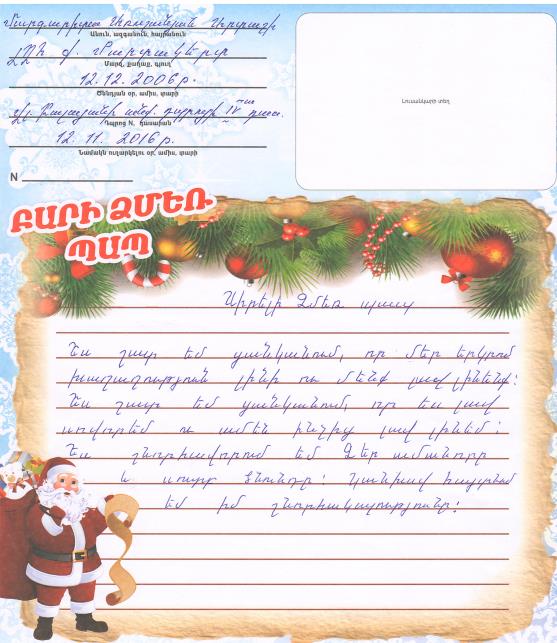 Մարգարիտա Առուշանյան Արտաշի
Անուն, ազգանուն, հայրանուն
ԼՂՀ ք. Մարտակերտ
Մարզ, քաղաք, գյուղ
12.12.2006թ.
Ծննդյան օր, ամիս, տարի
դպրոցի IV դաս.
Դպրոց N, դասարան
12.11.2016թ.
Նամակն ուղարկելու օր, ամիս, տարի
Լուսանկարի տեղ
N
ԲԱՐԻ ՁՄԵՌ
ՊԱՊ
Սիրելի Ձմեռ պապ
Ես շատ եմ ցանկանում, որ մեր երկրում
խաղաղություն լինի ու մենք լավ լինենք:
Ես շատ եմ ցանկանում, որ ես լավ
սովորեմ ու ամեն ինչից լավ լինեմ:
Ես շնորհավորում եմ Ձեր ամանորը
և սուրբ ծնունդը: Կանխավ հայտնում
եմ իմ շնորհակալությունը: